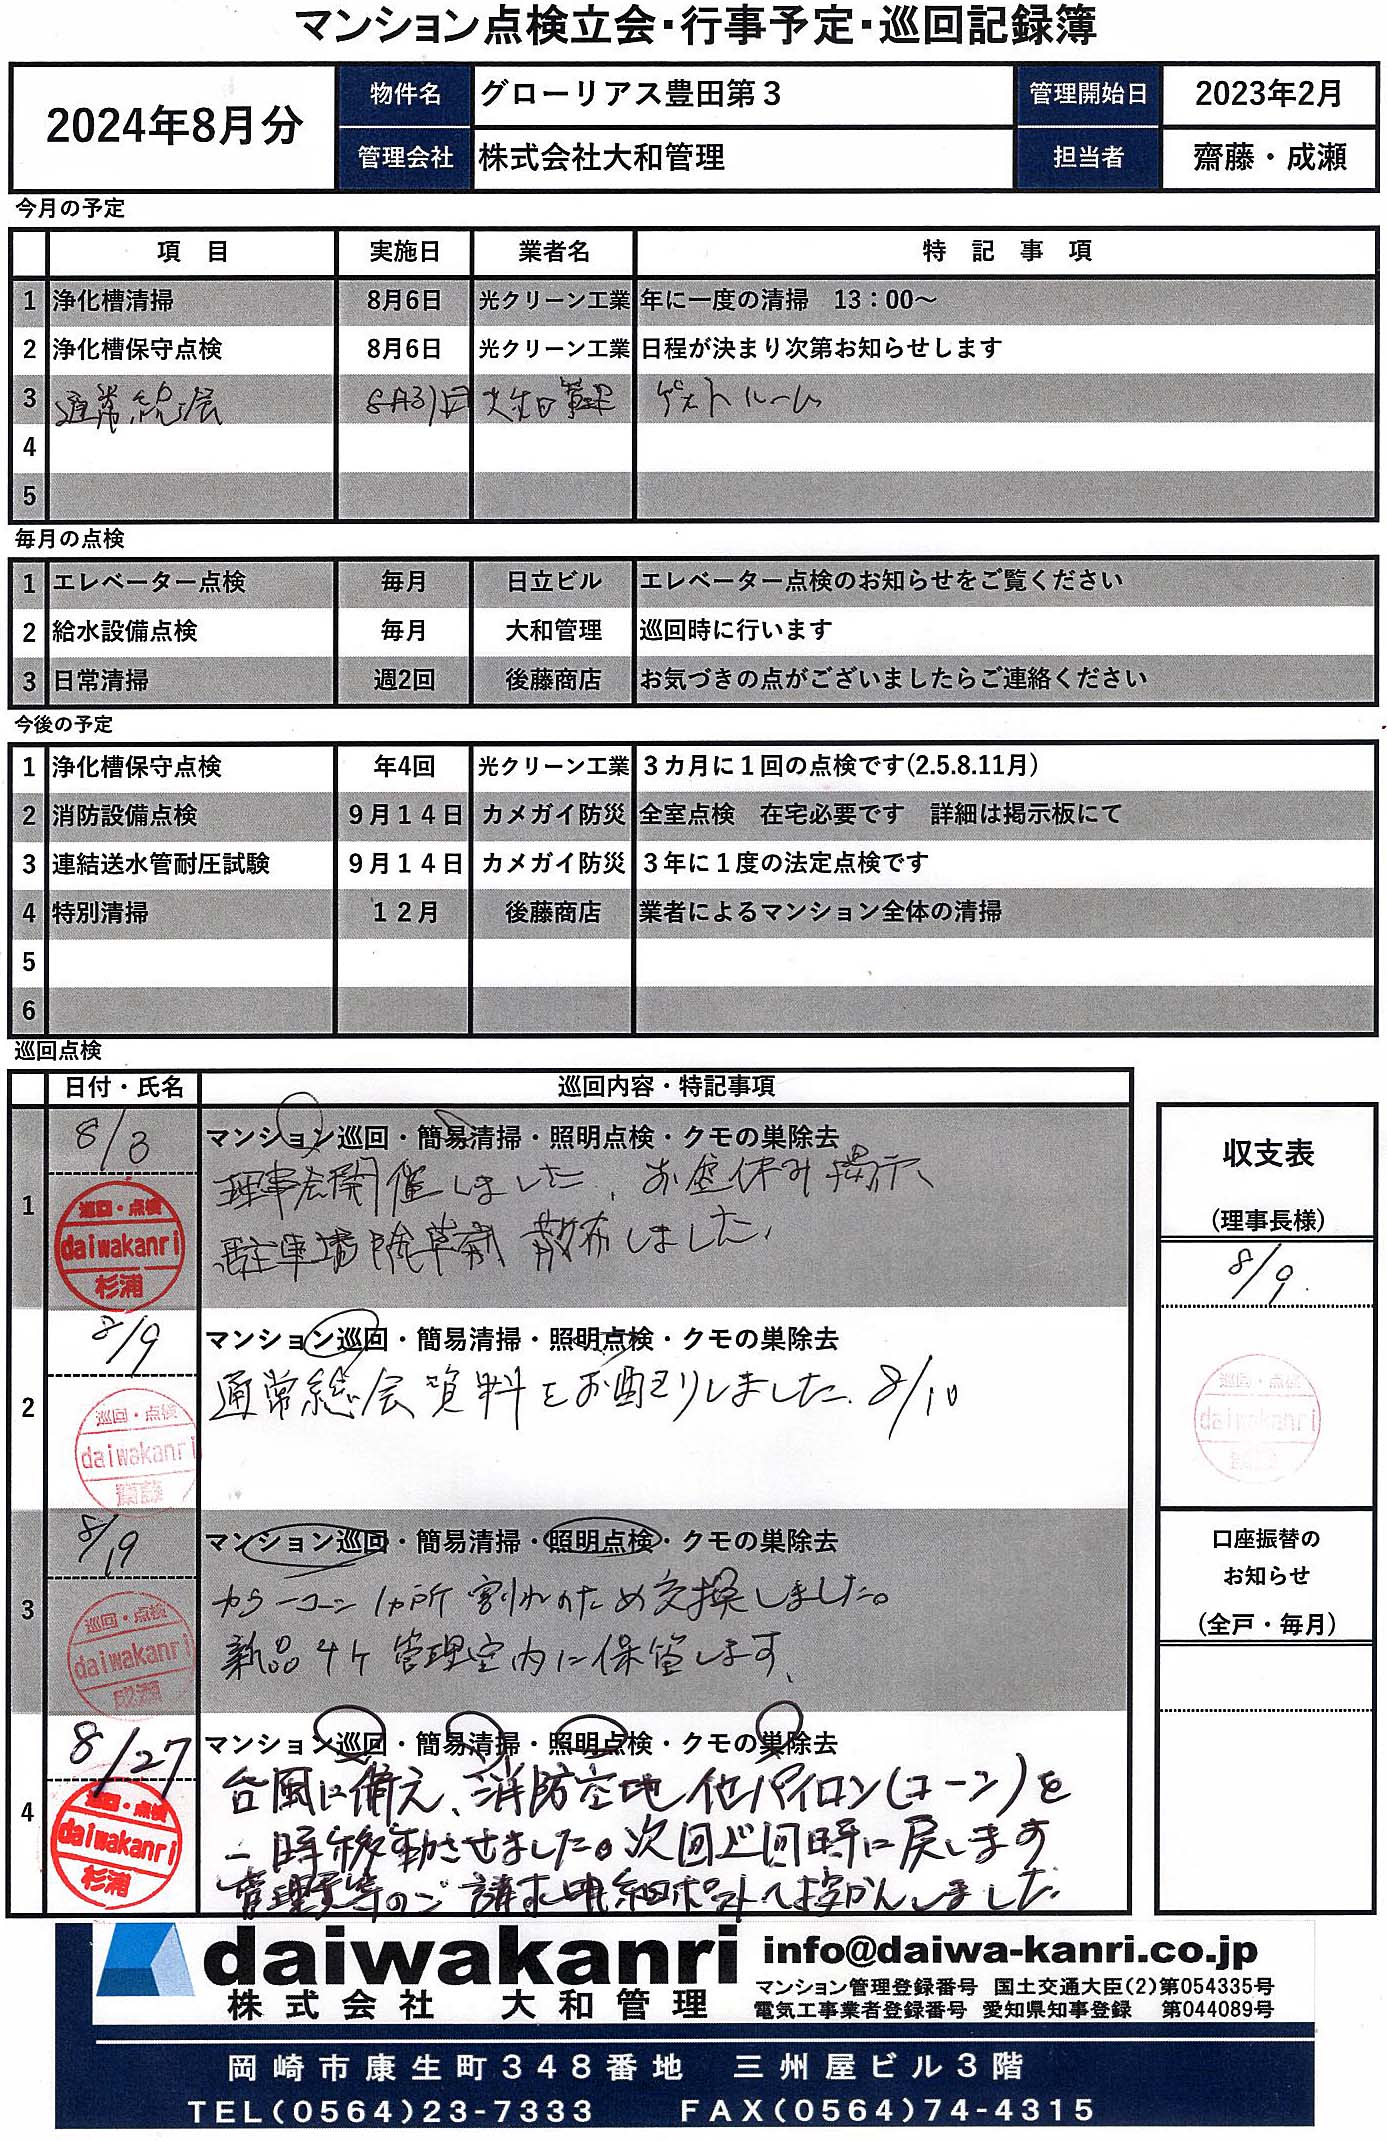 マンション点検立会・行事予定・巡回記録簿
2024年8月分 物件名 グローリアス豊田第３ 管理開始日 2023年2月
管理会社 株式会社大和管理 担当者 齋藤・成瀬
今月の予定
項 目 実施日 業者名 特 記 事 項
1 浄化槽清掃 8月6日 光クリーン工業 年に一度の清掃 13：00～
2 浄化槽保守点検 8月6日 光クリーン工業 日程が決まり次第お知らせします
3 通常総会 8月31日 大和管理 ゲストルーム
4
5
毎月の点検
1 エレベーター点検 毎月 日立ビル エレベーター点検のお知らせをご覧ください
2 給水設備点検 毎月 大和管理 巡回時に行います
3 日常清掃 週2回 後藤商店 お気づきの点がございましたらご連絡ください
今後の予定
1 浄化槽保守点検 年4回 光クリーン工業 ３カ月に１回の点検です(2.5.8.11月)
2 消防設備点検 ９月１４日 カメガイ防災 全室点検 在宅必要です 詳細は掲示板にて
3 連結送水管耐圧試験 ９月１４日 カメガイ防災 ３年に１度の法定点検です
4 特別清掃 １２月 後藤商店 業者によるマンション全体の清掃
5
6
巡回点検
日付・氏名 巡回内容・特記事項
1 8/3 マンション巡回・簡易清掃・照明点検・クモの巣除去
理事会開催しました、お盆休み掲示、
駐車場除草剤散布しました、
巡回・点検
daiwakanri
杉浦
2 8/9 マンション巡回・簡易清掃・照明点検・クモの巣除去
通常総会資料をお配りしました、8/10
巡回・点検
daiwakanri
齋藤
3 8/19 マンション巡回・簡易清掃・照明点検・クモの巣除去
カラーコーン1ヵ所割れのため交換しました。
新品4ケ管理室内に保管します、
巡回・点検
daiwakanri
成瀬
4 8/27 マンション巡回・簡易清掃・照明点検・クモの巣除去
台風に備え、消防空地他パイロン(コーン)を
一時移動させました。次回巡回時に戻します
管理費等のご請求明細ポストへ投かんしました
巡回・点検
daiwakanri
杉浦
収支表
(理事長様)
8/9
巡回・点検
daiwakanri
口座振替の
お知らせ
(全戸・毎月)
daiwakanri info@daiwa-kanri.co.jp
株式会社 大和管理
マンション管理登録番号 国土交通大臣(2)第054335号
電気工事業者登録番号 愛知県知事登録 第044089号
岡崎市康生町３４８番地 三州屋ビル３階
TEL(0564)23-7333 FAX(0564)74-4315